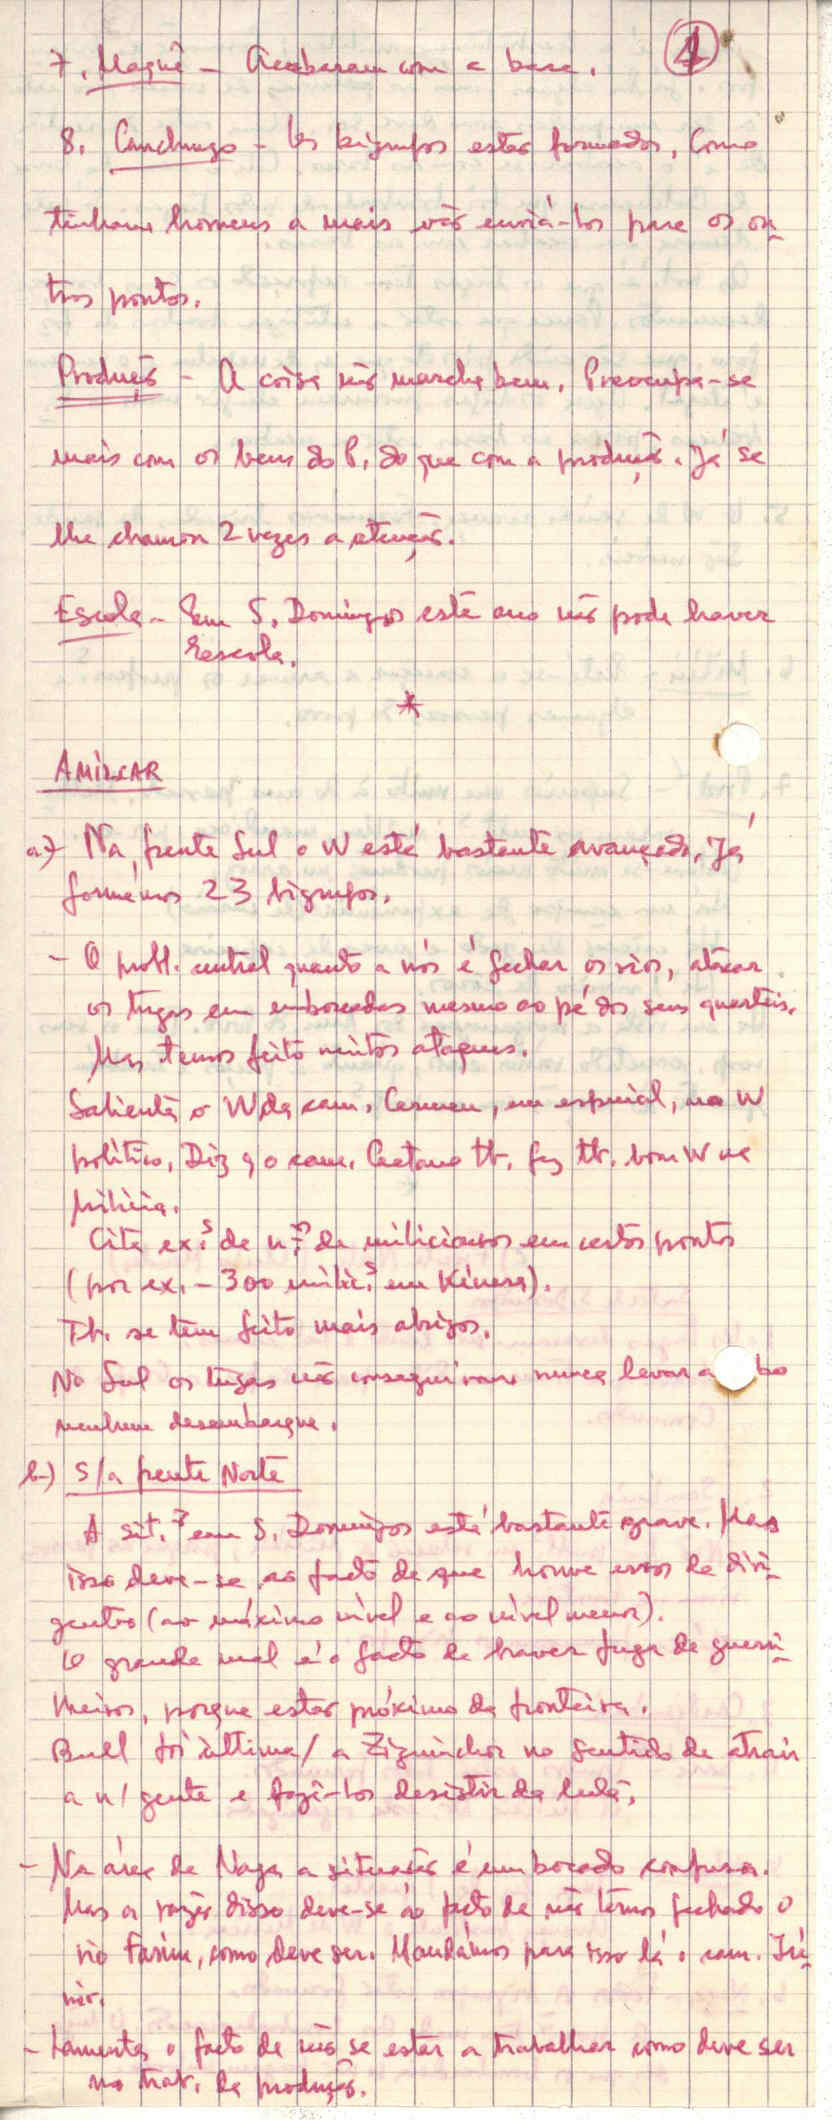 4
7. Maqué - Acabaram com a base.
8. Canchungo - Os bigrupos estão formados. Como
tinham homens a mais vão enviá-los para os ou-
tros pontos.
Produção - A coisa não marcha bem. Preocupa-se
mais com os bens do P. do que com a produção. Já se
lhe chamou 2 vezes a atenção.
Escola - Em S. Domingos este ano não pode haver
escola.
*
AMÍLCAR
a) Na frente Sul o W está bastante avançado. Já
formámos 23 bigrupos.
- O probl. central quanto a nós é fechar os rios, atacar
os tugas em emboscadas mesmo ao pé dos seus quartéis.
Mas temos feito muitos ataques.
Salienta o W da cam. Carmen, em especial, no W
político. Diz q o cam. Caetano tb. fez tb. bom W na
milícia.
Cita ex.s de n.os de milicianos em certos pontos
(por ex. - 300 milic.s em Kinera).
Tb. se tem feito mais abrigos.
No Sul os tugas não conseguiram nunca levar a bo
nenhum desembarque.
b) S/a frente Norte
A sit. em S. Domingos está bastante grave. Mas
isso deve-se ao facto de que houve erros de diri-
gentes (ao máximo nível e ao nível menor).
O grande mal é o facto de haver fuga de guerri-
lheiros, porque estão próximo da fronteira.
Bull foi ultima/ a Ziguinchor no sentido de atrair
a n/ gente e fazê-los desistir da luta.
- Na área de Naga a situação é um bocado confusa.
Mas a razão disso deve-se ao facto de não termos fechado o
rio Farim, como deve ser. Mandámos para isso lá o cam. Jú-
nior.
- Lamenta o facto de não se estar a trabalhar como deve ser
no trab. da produção.